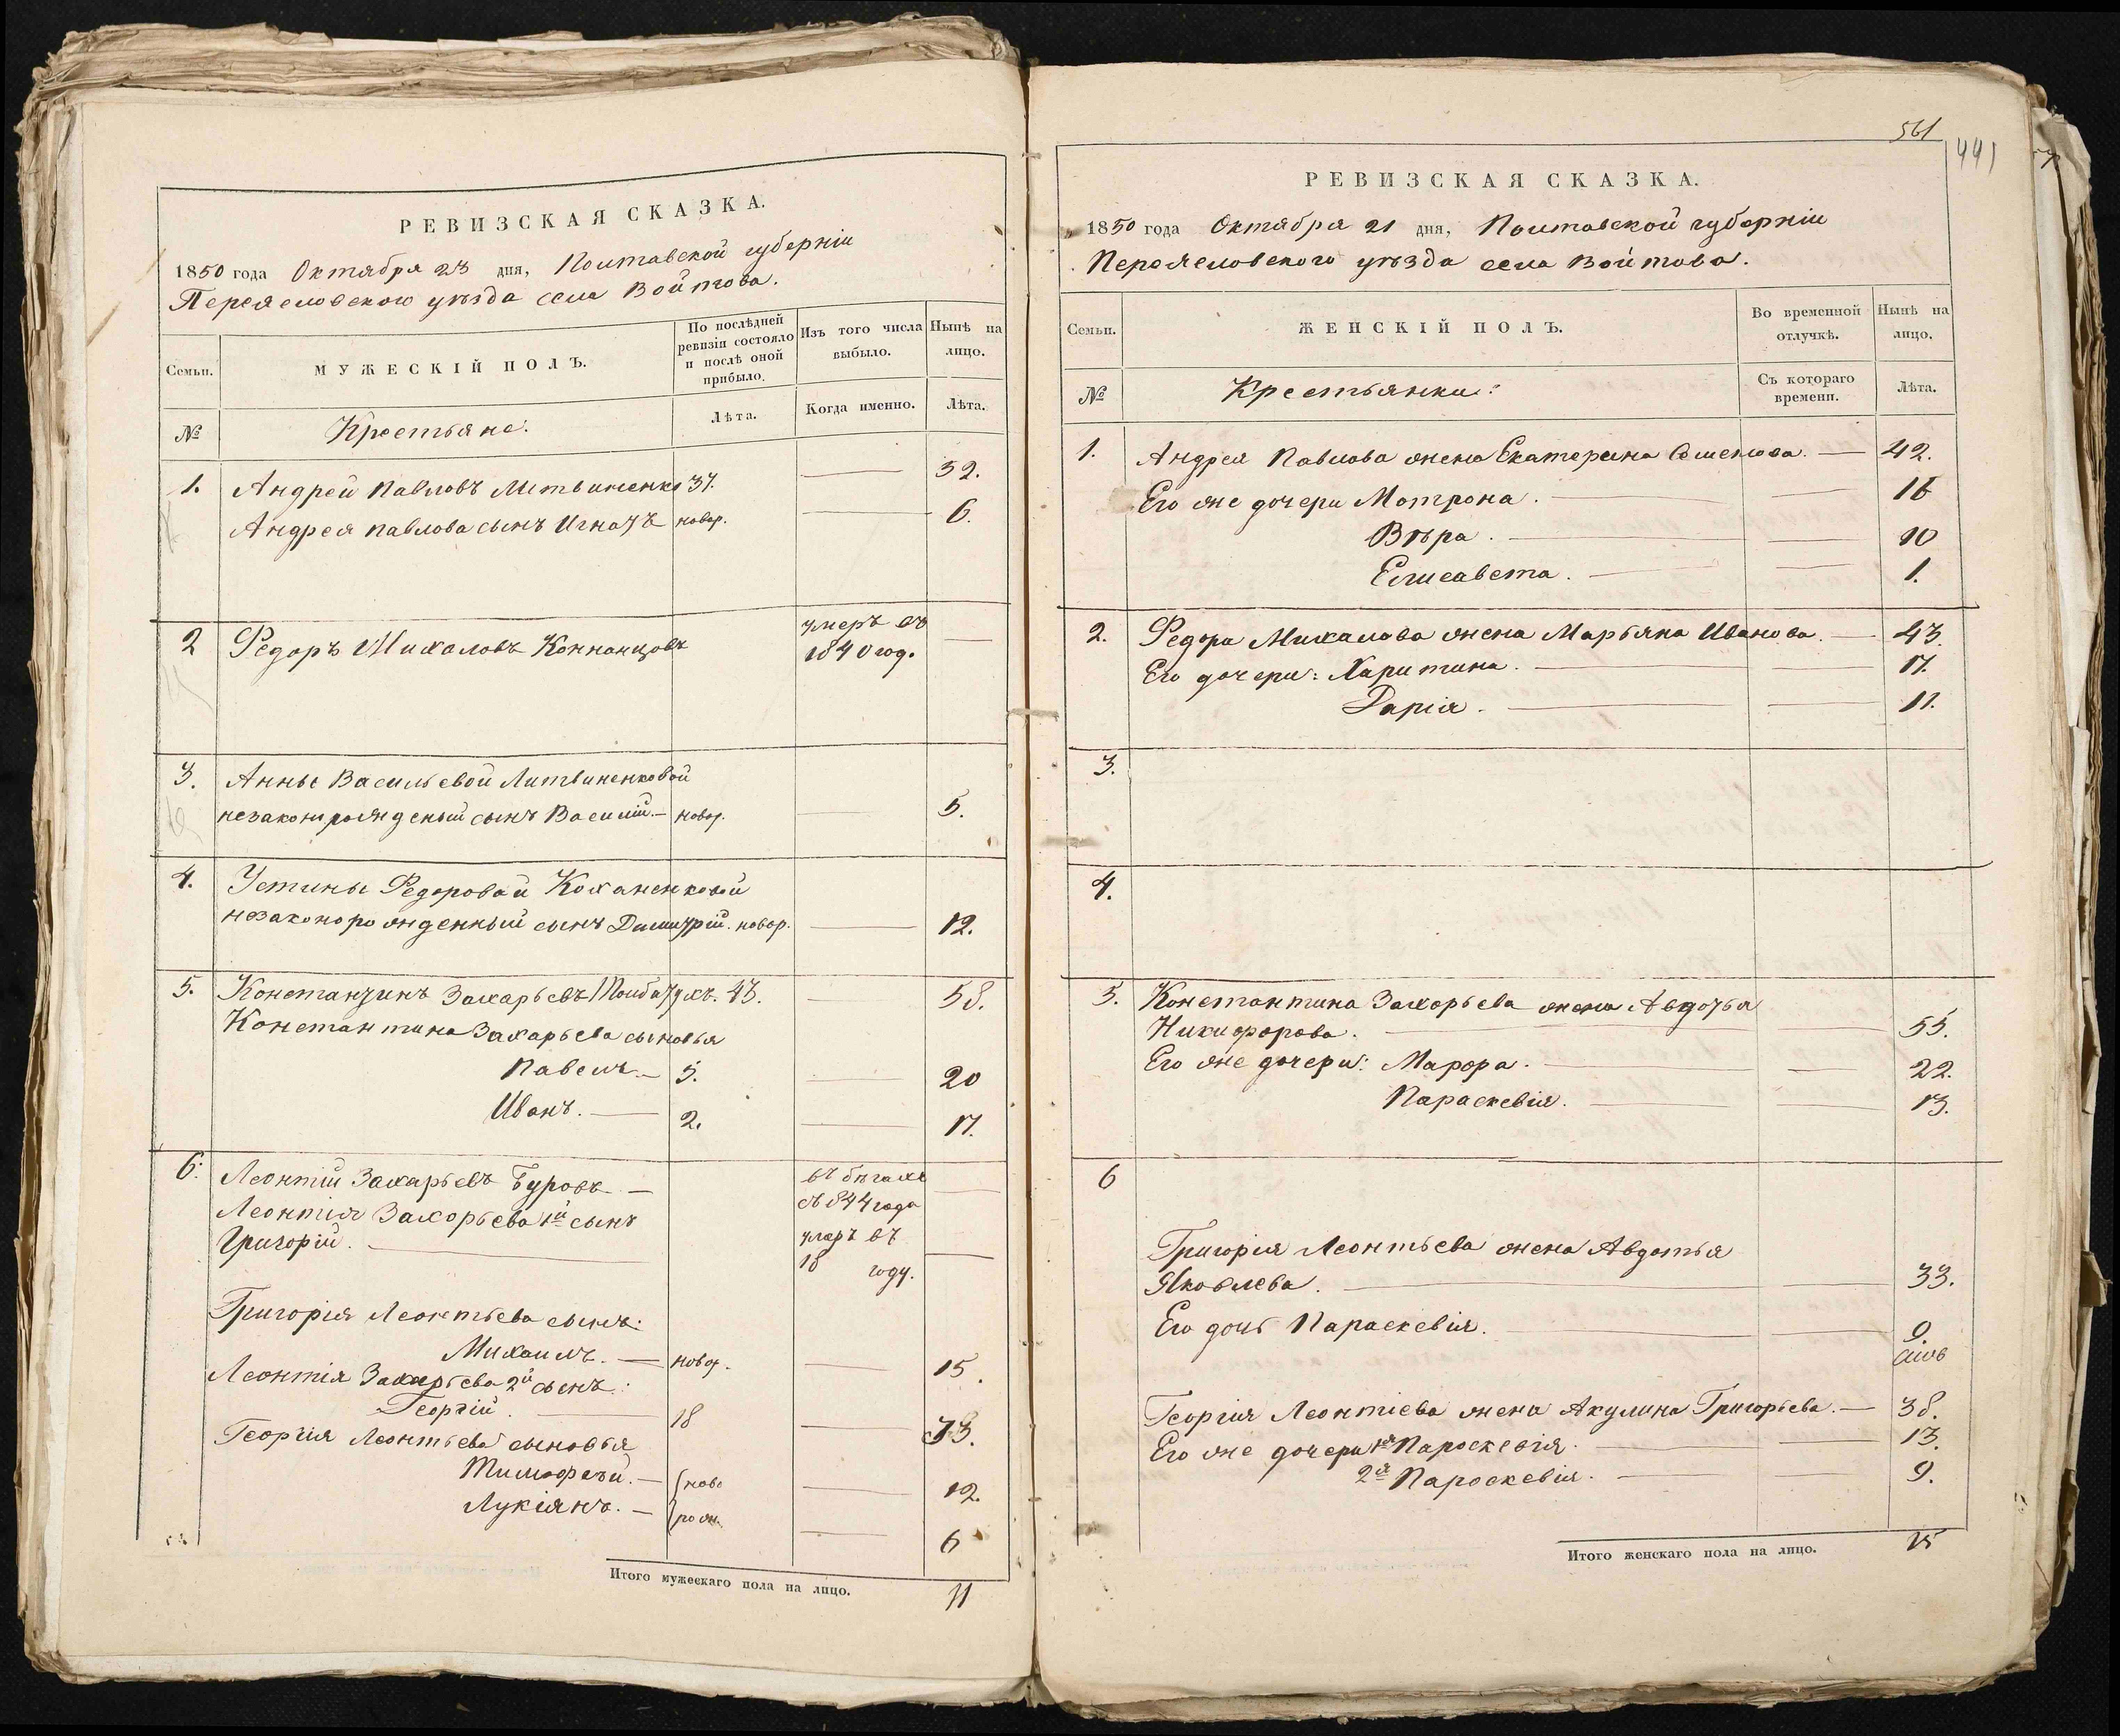 РЕВИЗСКАЯ СКАЗКА.
1850 года Октября 23 дня, Полтавской губерніи
Переясловского уѣзда села Войтова.
Семьи.
МУЖЕСКІЙ ПОЛЪ.
По послѣдней ревизіи состояло и послѣ оной прибыло.
Изъ того числа выбыло.
Нынѣ на лицо.
№
Крестьяне.
Лѣта.
Когда именно.
Лѣта.
1. Андрей Павловъ Литвиненко 37. 52.
Андрея Павлова сынъ Игнатъ новор. 6.
2 Федоръ Михаловъ умеръ въ
1840 год.
3. Анны Васильевой Литвиненковой
незаконорожденый сынъ Василій. новор. 5.
4. Устины Федоровой Коханенковой
незаконорожденный сынъ Димитрій. новор. 12.
5. Константинъ Захарьевъ 43. 58.
Константина Захарьева сыновья
Павелъ 5. 20
Иванъ. 2. 17.
6. Леонтій Захарьевъ Буровъ въ бѣгахъ
Леонтія Захорьева 1й сынъ 844 года
Григорій. умеръ въ
18 году.
Григорія Леонтьева сынъ:
Михаилъ. новор. 15.
Леонтія Захарьева 2й сынъ:
Георгій. 18 33.
Георгія Леонтьева сыновья
Тимофей. ново 12.
Лукіянъ. рож. 6
Итого мужескаго пола на лицо. 11
561
441
РЕВИЗСКАЯ СКАЗКА.
1850 года Октября 21 дня, Полтавской губерніи
Переясловского уѣзда села Войтова.
Семьи.
ЖЕНСКІЙ ПОЛЪ.
Во временной отлучкѣ.
Нынѣ на лицо.
№
Крестьянки:
Съ котораго времени.
Лѣта.
1. Андрея Павлова жена Екатерина Семенова. 42.
Его же дочери Мотрона. 16
Вѣра. 10
Елисавета. 1.
2. Федора Михалова жена Марьяна Иванова. 43.
Его дочери: Харитина. 17.
Дарія. 11.
3.
4.
5. Константина Захорьева жена Авдотья
Никифорова. 55.
Его же дочери: Марфа. 22.
Параскевія. 13.
6
Григорія Леонтьева жена Авдотья
Яковлева. 33.
Его дочь Параскевія. 9.
Георгія Леонтіева жена Акулина Григорьева. 38.
Его же дочери 1я Пароскевія. 13.
2я Пароскевія. 9.
Итого женскаго пола на лицо. 15